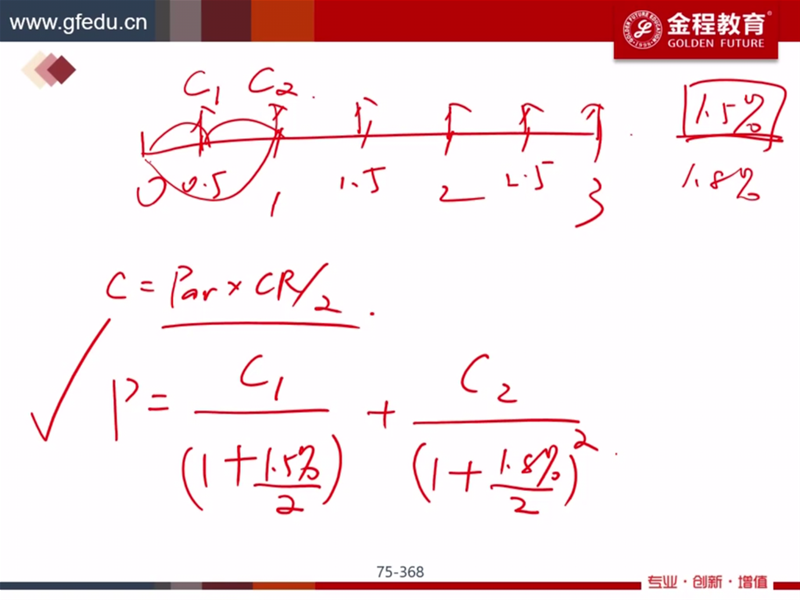 www.gfedu.cn
金程教育
GOLDEN FUTURE
C₁ C₂ .
0 0.5 1 1.5 2 2.5 3
1.5%
1.8%
C = Par × CR/2 .
P = C₁/(1 + 1.5%/2) + C₂/(1 + 1.8%/2)² .
75-368
专业·创新·增值